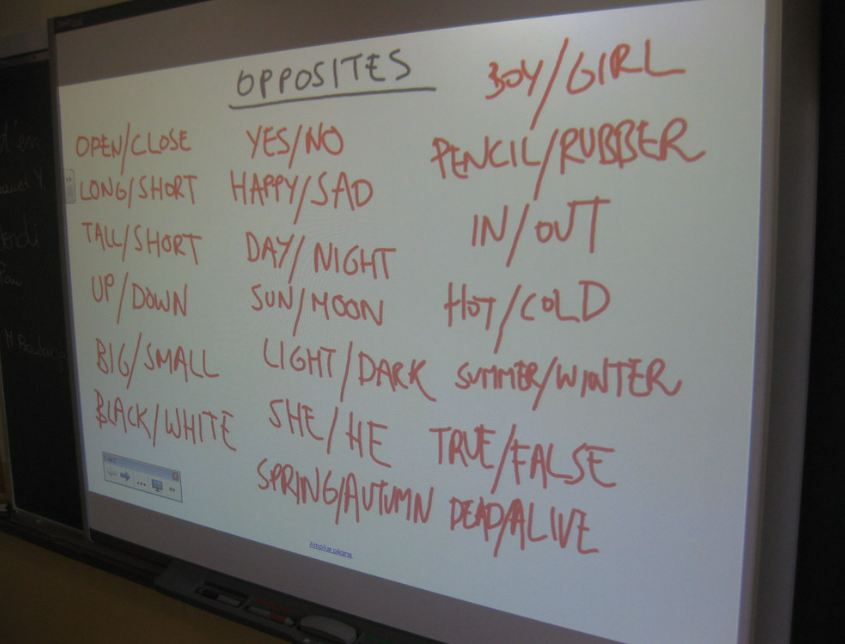 OPPOSITES
OPEN/CLOSE
LONG/SHORT
TALL/SHORT
UP/DOWN
BIG/SMALL
BLACK/WHITE
YES/NO
HAPPY/SAD
DAY/NIGHT
SUN/MOON
LIGHT/DARK
SHE/HE
SPRING/AUTUMN
BOY/GIRL
PENCIL/RUBBER
IN/OUT
HOT/COLD
SUMMER/WINTER
TRUE/FALSE
DEAD/ALIVE